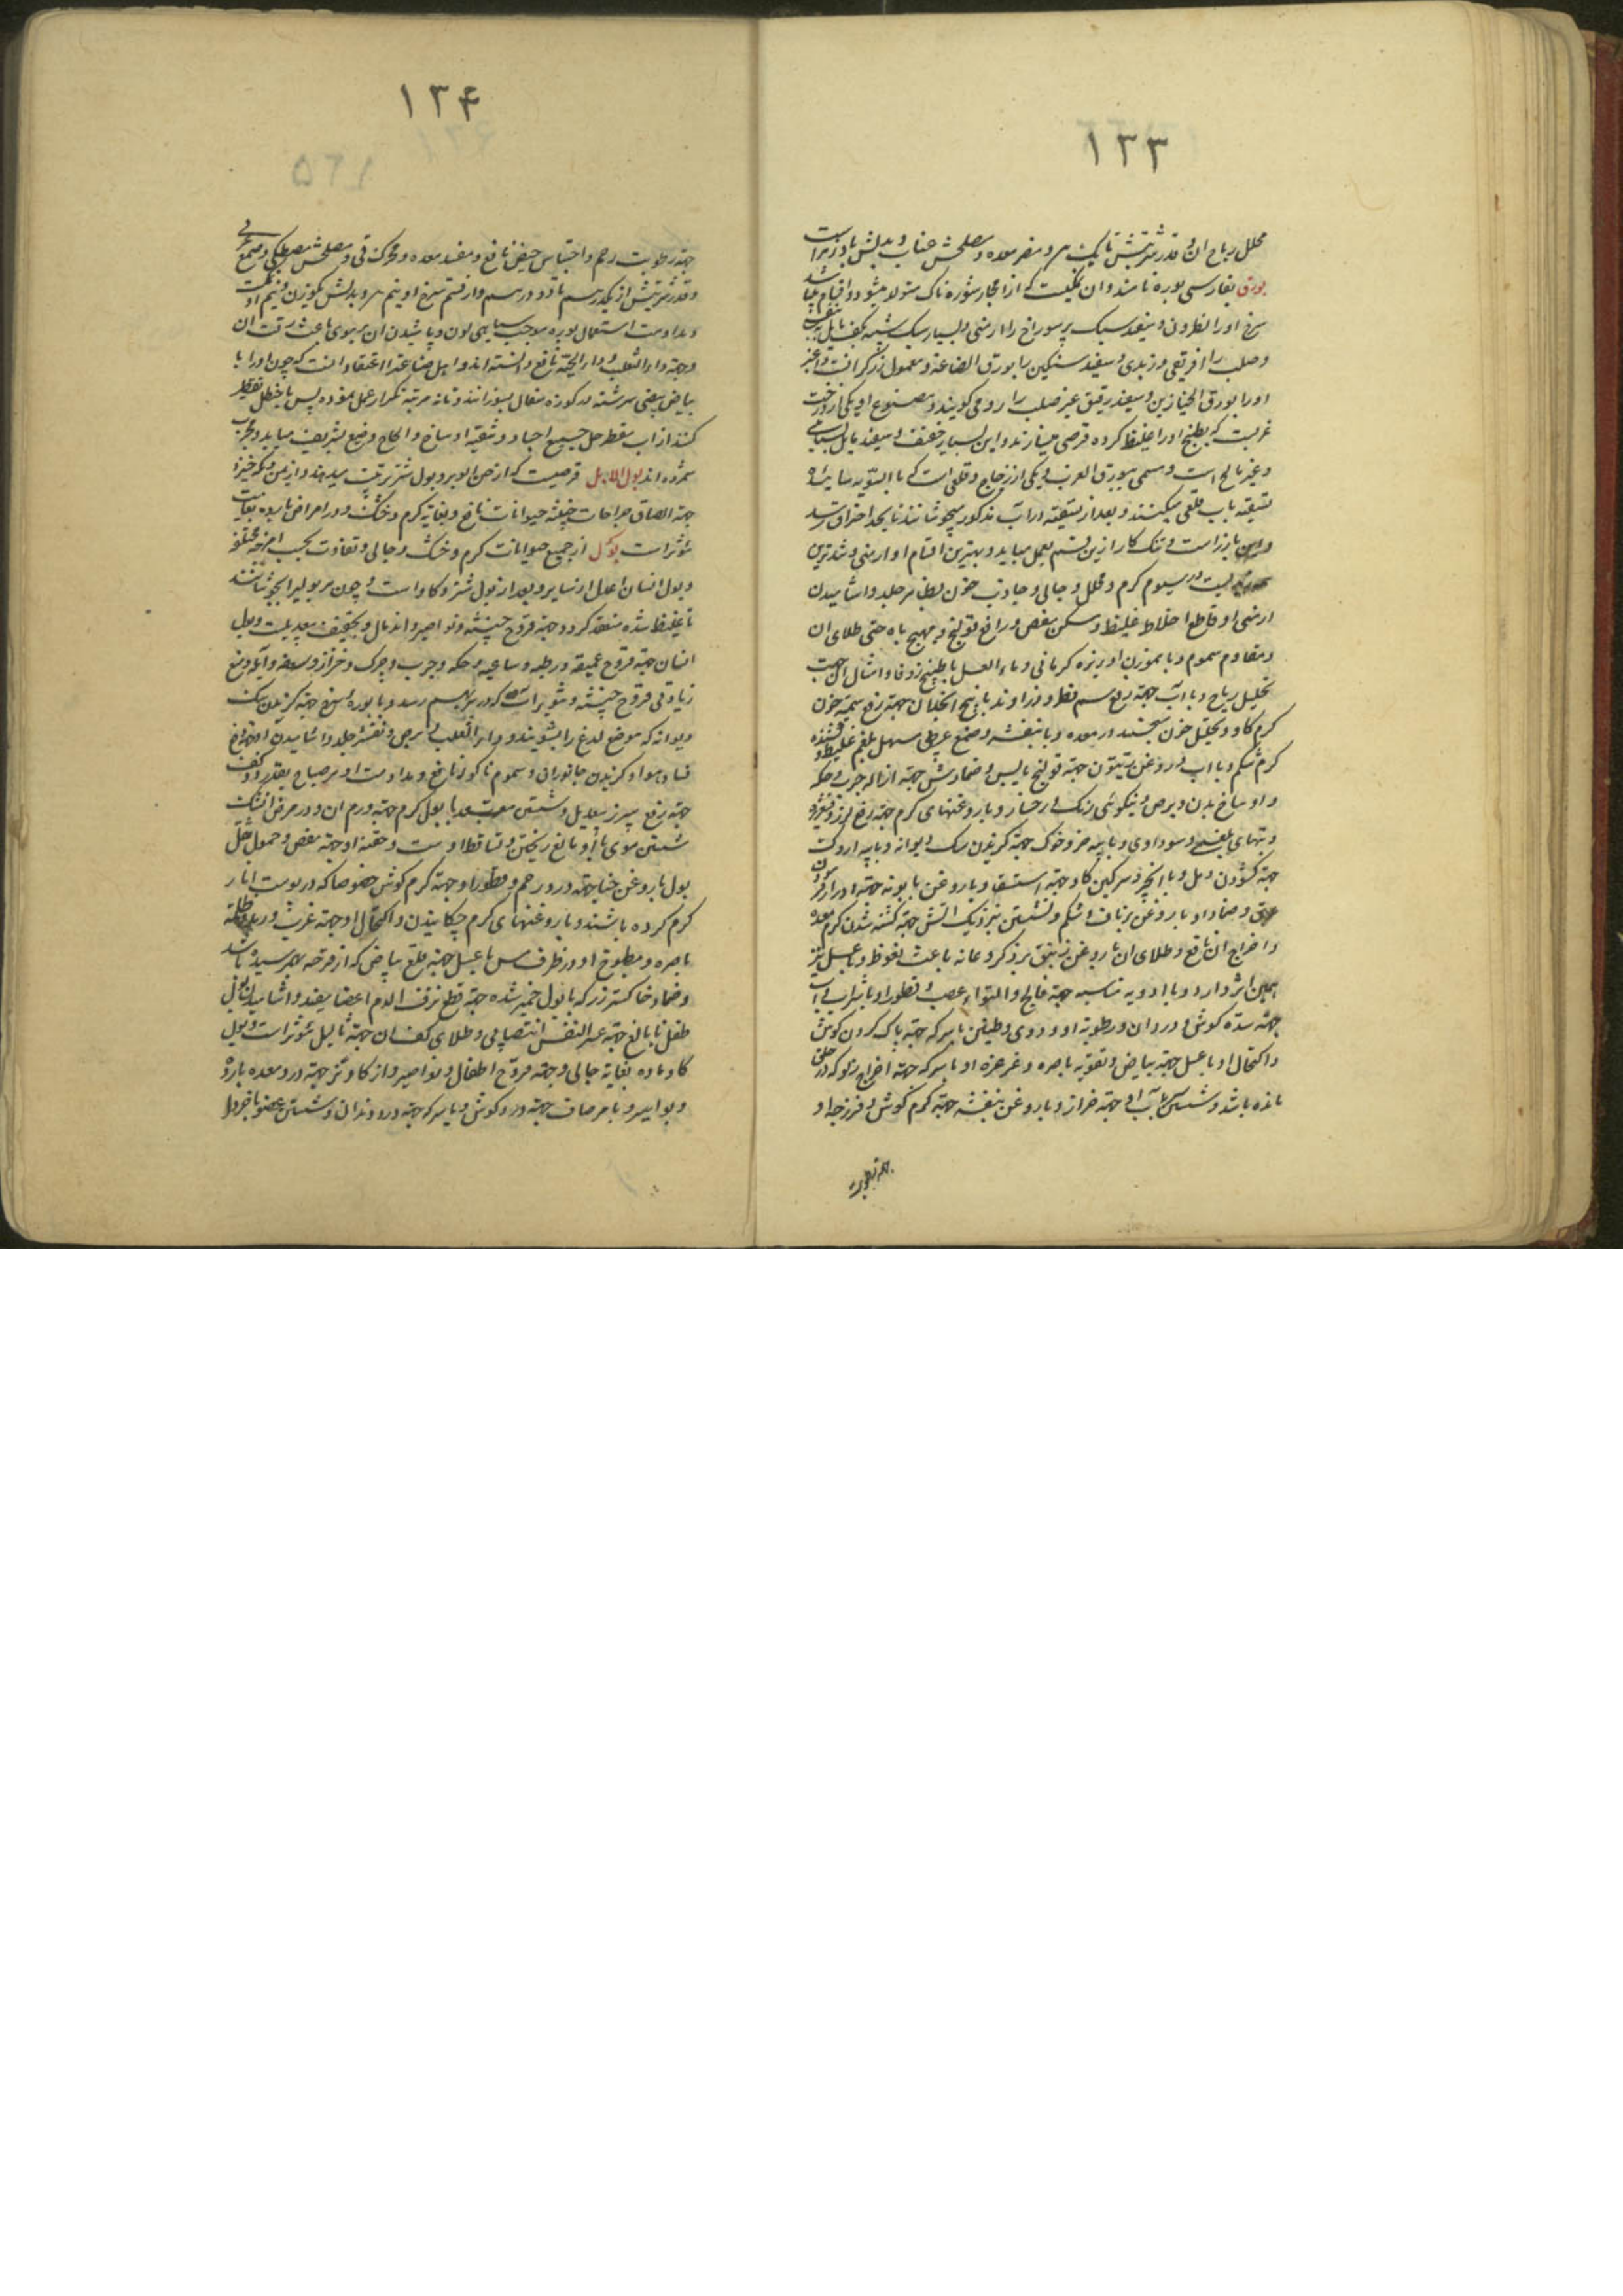 ۱۳۳
محلل ریاح ان و قدر شربتش تا یک و مضر معده و مصلحش عناب و بدلش بادزیراست
بورق بفارسی بوره نامند و ان نمکیست که از احجار شوره ناک متولد میشود و اقسام میباشد
سرخ اورا نطرون و سفید سبک پر سوراخ را ارمنی و بسیار سبک شبیه بکف مایل به بنفسجی
و صلب را افریقی و زبدی و سفید سنگین را بورق الصاغه و معمول زرگرانست و اغبر
اورا بورق الخبازین و سفید رقیق غیر صلب را رومی گویند و مصنوع او یکی از درخت
غربست که بطبخ اورا غلیظ کرده قرصی میسازند و این بسیار خفیف و سفید مایل بسیاهی
و غیر مالح است و مسمی ببورق الغرب و یکی از زجاج و قلعی است که بالسویه سائیده
تسقیه باب قلی میکنند و بعد از تسقیه در اب مذکور میجوشانند تا بحد احتراق رسد
بارز است و تنکار ازین قسم بعمل میاید و بهترین اقسام او ارمنی و تندترین
در سیوم گرم و محلل و جالی و جاذب خون بظاهر جلد و اشامیدن
ارمنی او قاطع اخلاط غلیظ و مسکن مغص و رافع قولنج و مهیج باه حتی طلای ان
و مقاوم سموم و با هموزن او زیره کرمانی و ماء العسل یا طبیخ زوفا و امثال ان جهت
تحلیل ریاح و با اب جهة رفع سم قطر و ذراریح و با بیخ انجدان جهة رفع سمیة خون
گرم گاو و تحلیل خون منجمد در معده و با بنفشه و صمغ عربی مسهل بلغم غلیظ و کشنده
کرم شکم و با اب و روغن زیتون جهة قولنج یابس و ضمادش جهة ازاله جرب و حکه
و اوساخ بدن و برص و نیکوئی رنگ رخسار و با روغنهای گرم جهة رفع لرز و قشعریره
و تبهای بلغمی و سوداوی و با پیه خر و خوک جهة گزیدن سگ دیوانه و با پیه اردک
جهة گشودن دمل و با انجیر و سرگین گاو جهة استسقا و با روغن بابونه جهة ادرار
عرق و ضماد او با روغن بر ناف و شکم و نشستن نزدیک اتش جهة کشته شدن کرم معده
و اخراج ان نافع و طلای ان با روغن زنبق بر ذکر و عانه باعث نعوظ و با عسل نیز
همین اثر دارد و با ادویه مناسبه جهة فالج و التواء عصب و قطور او با شراب و اب
جهة سده گوش و درد ان و رطوبة او و دوی و طنین با سرکه جهة پاک کردن گوش
و اکتحال او با عسل جهة بیاض و تقویة باصره و غرغره او با سرکه جهة اخراج زلو که در حلق
مانده باشد و شستن باب او جهة خزاز و با روغن بنفشه جهة کرم گوش و فرزجه او
۱۳۴
جهة رطوبت رحم و احتباس حیض نافع و مفسد معده و محرک قی و مصلحش مصطکی و صمغ عربی
و قدر شربتش از یکدرهم تا دو درهم و از قسم سرخ او نیم و بدلش یکوزن و نیم او نمکست
و مداومت استعمال بوره موجب سیاهی لون و پاشیدن ان بر موی باعث رقت ان
و جهة داء الثعلب و داء الحیة نافع دانسته اند و اهل صناعة را اعتقاد انست که چون اورا با
بیاض بیض سرشته در کوزه سفال بسوزانند و تا نه مرتبه تکرار عمل نموده پس با خنظل تقطیر
کنند از اب مقطر حل جمیع اجساد و تنقیه اوساخ و املاح وضیع بشریف میاید و مجرب
شمرده اند بول الابل قرصیست که از صنوبر و بول شتر ترتیب میدهند و از یمن و مکه خیزد
جهة الصاق جراحات خبیثه حیوانات نافع و بغایة گرم و خشک و در امراض بارده بغایت
مؤثر است بول از جمیع حیوانات گرم و خشک و جالی و تفاوت بحسب امزجه مختلفه
و بول انسان اعدل از سایر و بعد از بول شتر و گاو است و چون هر بولیرا بجوشانند
تا غلیظ شده منعقد گردد جهة قروح خبیثه و نواصیر و اندمال و تجفیف بیعدیلست و بول
انسان جهة قروح عمیقه و رطبه و ساعیه و حکه و جرب و چرک و خزاز و سعفه و آکله و منع
زیادتی قروح خبیثه و بثور نافع است که در بدن بهم رسد و با بوره سرخ جهة گزیدن سگ
دیوانه که موضع لدغ را بشویند و داء الثعلب و برص و تقشر جلد و اشامیدن او جهة رفع
فساد هوا و گزیدن جانوران و سموم ماکول نافع و مداومت او هر صباح بقدر دو کف
جهة رفع سپرز بیعدیل و شستن مقعد با بول گرم جهة ورم ان و در مرض
شستن موی باو مانع ریختن و تساقط اوست و حقنه او جهة مغص و حمول ثفل
بول با روغن حنا جهة درد رحم و قطور او جهة کرم گوش خصوصا که در پوست انار
گرم کرده باشند و با روغنهای گرم چکانیدن و اکتحال او جهة غرب و رمد و ظلمة
باصره و مطبوخ او در ظرف مس با عسل جهة قلع بیاض که از قرحه بهم رسیده باشد
و ضماد خاکستر رز که با بول خمیر شده جهة قطع نزف الدم اعضا مفید و اشامیدن بول
طفل نابالغ جهة عسر النفس انتصابی و طلای کف ان جهة ثالیل مؤثر است و بول
گاو ماده بغایة جالی و جهة قروح اطفال و نواصیر و از گاو نر جهة درد معده بارد
و بواسیر و با مر صاف جهة درد گوش و با سرکه جهة درد دندان و شستن عضو باخردل